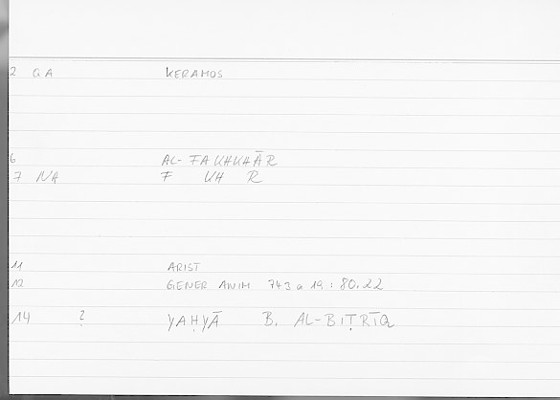 2 QA KERAMOS
6 AL-FAKHKHĀR
7 NA F KH R
11 ARIST
12 GENER ANIM 743 a 19 : 80.22
14 ? YAḤYĀ B. AL-BIṬRĪQ